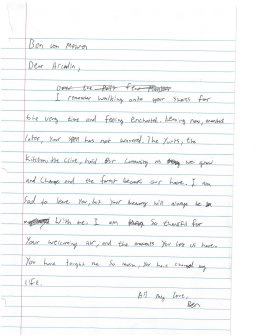 Ben von Meuren
Dear Arcadia,
I remember walking onto your shores for
the very time and feeling enchanted. Leaving now, months
later, your spell has not wavered. The Yurts, the
Kitchen, the Cline, hold our as we grow
and Change and the forest became our home. I am
sad to leave you, but your memory will always be
With me. I am So thankful for
Your welcoming air, and the moments You let us have.
You have taught me So much, You have changed my
life.
All my love,
Ben